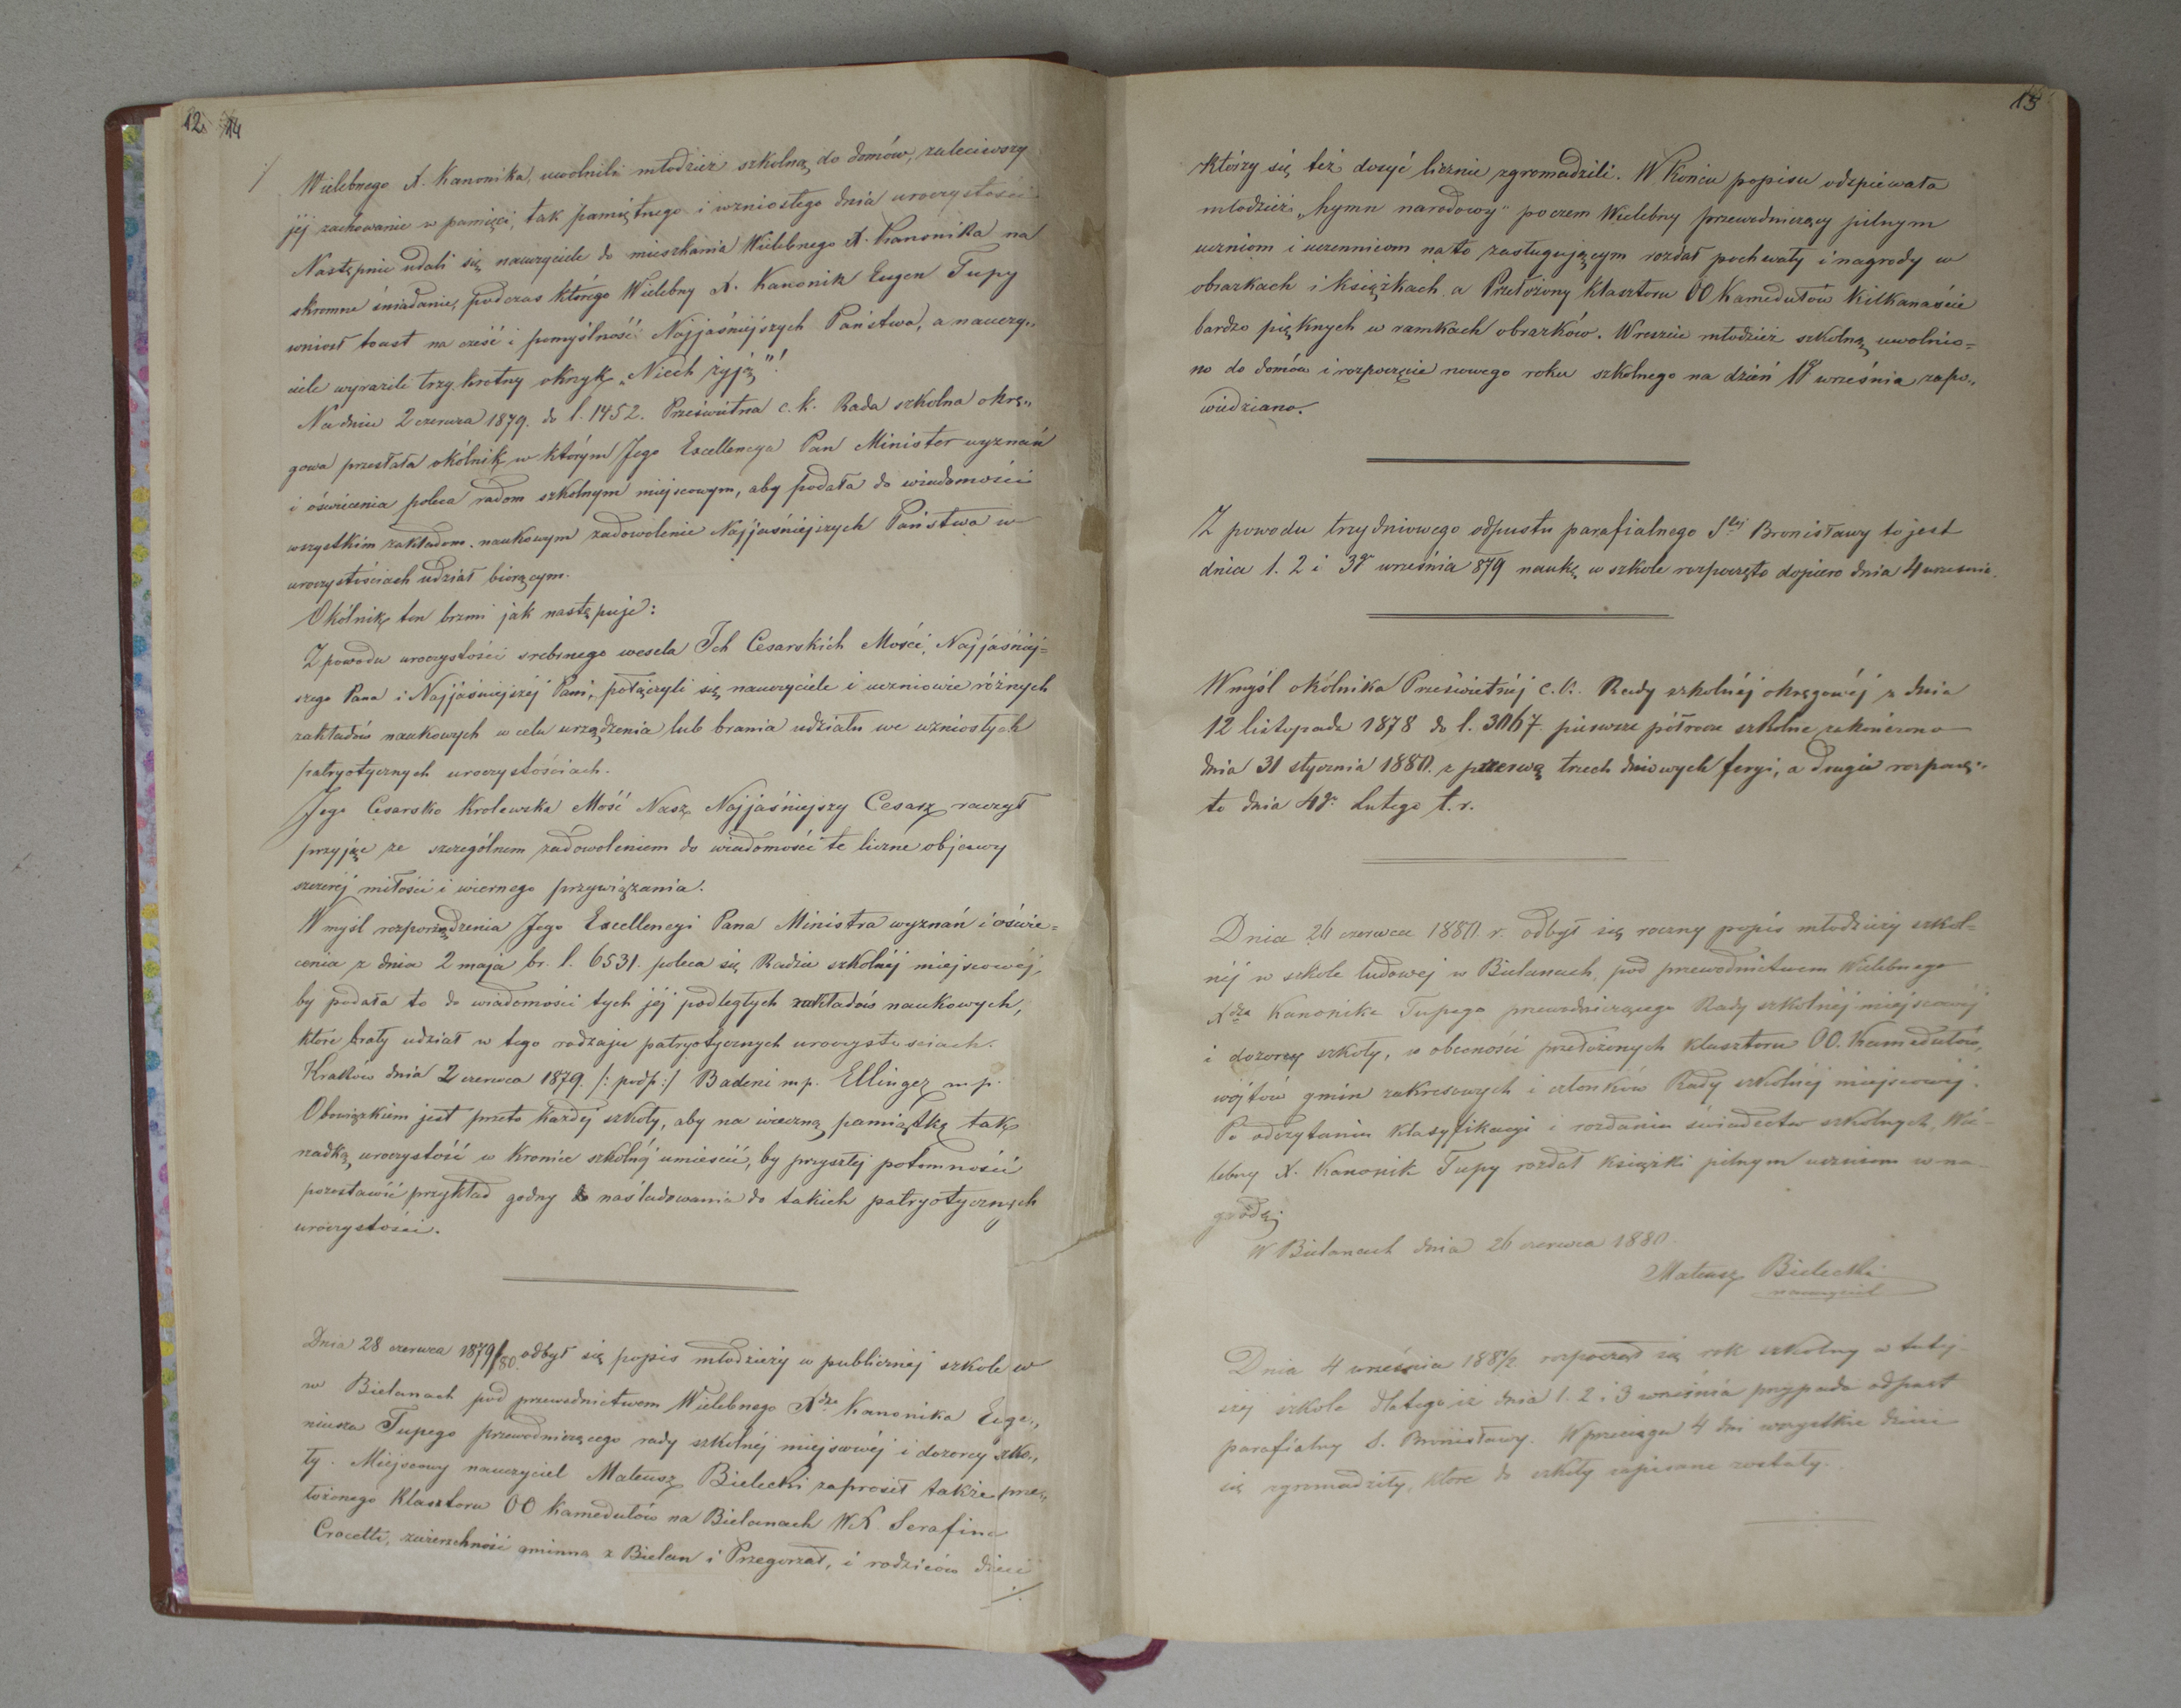 12. 14
Wielebnego X. Kanonika, uwolnili młodzież szkolną do domów, zaleciwszy
jéj zachowanie w pamięci, tak pamiętnego i wzniosłego dnia uroczystości
Następnie udali się nauczyciele do mieszkania Wielebnego X. Kanonika na
skromne śniadanie, podczas którego Wielebny X. Kanonik Eugen Tupy
wniósł toast na cześć i pomyślność Najjaśniejszych Państwa, a nauczy„
ciele wyrazili trzykrotny okrzyk „Niech żyją"!
Na dniu 2 czerwca 1879. do l. 1452. Prześwietna c. k. Rada szkolna okrę„
gowa przesłała okólnik w którym Jego Excellencya Pan Minister wyznań
i oświecenia poleca radom szkolnym miejscowym, aby podała do wiadomości
wszystkim zakładom naukowym zadowolenie Najjaśniejszych Państwa w
uroczystościach udział biorącym.
Okólnik ten brzmi jak następuje:
Z powodu uroczystości srebrnego wesela Ich Cesarskich Mości, Najjaśniej=
szego Pana i Najjaśniejszéj Pani, połączyli się nauczyciele i uczniowie różnych
zakładów naukowych w celu urządzenia lub brania udziału we wzniosłych
patryotycznych uroczystościach.
Jego Cesarsko Królewska Mość Nasz Najjaśniejszy Cesarz raczył
przyjąć ze szczególnem zadowoleniem do wiadomości te liczne objawy
szczeréj miłości i wiernego przywiązania.
W myśl rozporządzenia Jego Excellencyi Pana Ministra wyznań i oświe=
cenia z dnia 2 maja br. l. 6531. poleca się Radzie szkolnéj miejscowéj,
by podała to do wiadomości tych jéj podległych zakładów naukowych,
które brały udział w tego rodzaju patryotycznych uroczystosciach.
Kraków dnia 2 czerwca 1879. /: podp :/ Badeni mp. Ellinger mp.
Obowiązkiem jest przeto każdej szkoły, aby na wieczną pamiątkę tak
rzadką uroczystość w Kronice szkolnéj umieścić, by przyszłej potomności
pozostawić przykład godny naśladowania do takich patryotycznych
uroczystości.
Dnia 28 czerwca 1879/80 odbył się popis młodzieży w publicznéj szkole w
w Bielanach pod przewodnictwem Wielebnego Xdza Kanonika Euge„
niusza Tupego przewodniczącego rady szkolnéj miejscowéj i dozorcy szko„
ły. Miejscowy nauczyciel Mateusz Bielecki zaprosił także prze„
łożonego Klasztoru OO Kamedułów na Bielanach WX. Serafina
Crocetti, zwierzchność gminną z Bielan i Przegorzał, i rodziców dzieci
15
którzy się też dosyć licznie zgromadzili. W Końcu popisu odspiewała
młodzież „hymn narodowy" poczem Wielebny przewodniczący pilnym
uczniom i uczennicom na to zasługującym rozdał pochwały i nagrody w
obrazkach i książkach, a Przełożony klasztoru OO Kamedułów kilkanaście
bardzo pięknych w ramkach obrazków. Wreszcie młodzież szkolną uwolnio=
no do domów i rozpoczęcie nowego roku szkolnego na dzień 1go września zapo„
wiedziano.
Z powodu trzydniowego odpustu parafialnego Stej Bronisławy to jest
dnia 1. 2 i 3go września 879 naukę w szkole rozpoczęto dopiero dnia 4 września.
W myśl okólnika Prześwietnéj c. k. Rady szkolnéj okręgowéj z dnia
12 listopada 1878 do l. 3067 pierwsze półrocze szkolne zakończono
dnia 31 stycznia 1880. z przerwą trzech dniowych feryi, a drugie rozpoczę„
to dnia 4go Lutego t. r.
Dnia 26 czerwca 1880. r. odbył się roczny popis młodzieży szkol=
néj w szkole ludowej w Bielanach, pod przewodnictwem Wielebnego
Xdza Kanonika Tupego przewodniczącego Rady szkolnéj miejscowéj
i dozorcy szkoły, w obecności przełożonych klasztoru OO. Kamedułów,
wójtów gmin zakresowych i członków Rady szkolnéj miejscowéj.
Po odczytaniu klasyfikacyi i rozdaniu świadectw szkolnych, Wie
lebny X. Kanonik Tupy rozdał książki pilnym uczniom w na
grodę.
W Bielanach dnia 26 czerwca 1880.
Mateusz Bielecki
nauczyciel
Dnia 4 września 1881/2 rozpoczął się rok szkolny w tutej-
szej szkole dlatego iż dnia 1. 2 i 3 września przypada odpust
parafialny S. Bronisławy. W przeciągu 4 dni wszystkie dzieci
się zgromadziły, które do szkoły zapisane zostały.